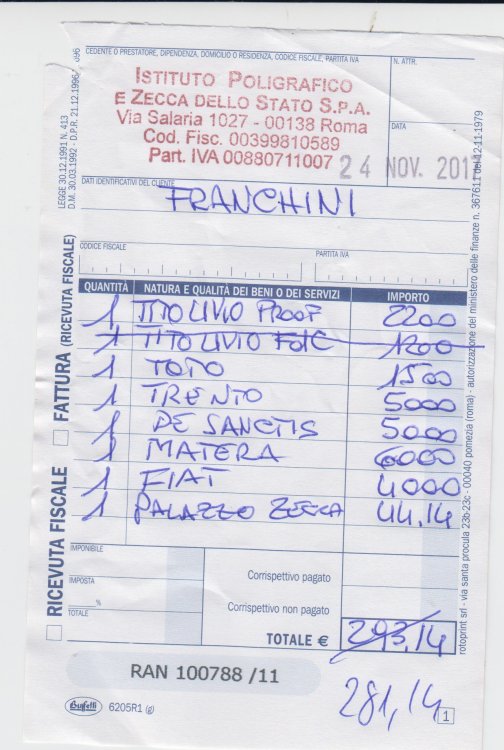 CEDENTE O PRESTATORE, DIPENDENZA, DOMICILIO O RESIDENZA, CODICE FISCALE, PARTITA IVA
N. ATTR.
ISTITUTO POLIGRAFICO
E ZECCA DELLO STATO S.P.A.
Via Salaria 1027 - 00138 Roma
Cod. Fisc. 00399810589
Part. IVA 00880711007
DATA
24 NOV. 201
DATI IDENTIFICATIVI DEL CLIENTE
FRANCHINI
CODICE FISCALE
PARTITA IVA
QUANTITÀ NATURA E QUALITÀ DEI BENI O DEI SERVIZI IMPORTO
1 TITO LIVIO PROOF 2200
1 TITO LIVIO FDC 1200
1 TOTO 1500
1 TRENTO 5000
1 DE SANCTIS 5000
1 MATERA 6000
1 FIAT 4000
1 PALAZZO ZECCA 44,14
IMPONIBILE
IMPOSTA
%
TOTALE
Corrispettivo pagato
Corrispettivo non pagato
TOTALE € 293,14
RAN 100788 /11
281,14
Buffetti 6205R1 (g)
1
LEGGE 30.12.1991 N. 413
D.M. 30.03.1992 - D.P.R. 21.12.1996
RICEVUTA FISCALE FATTURA (RICEVUTA FISCALE)
rotoprint srl - via santa procula 23b-23c - 00040 pomezia (roma) - autorizzazione del ministero delle finanze n. 367611 del 12-11-1979